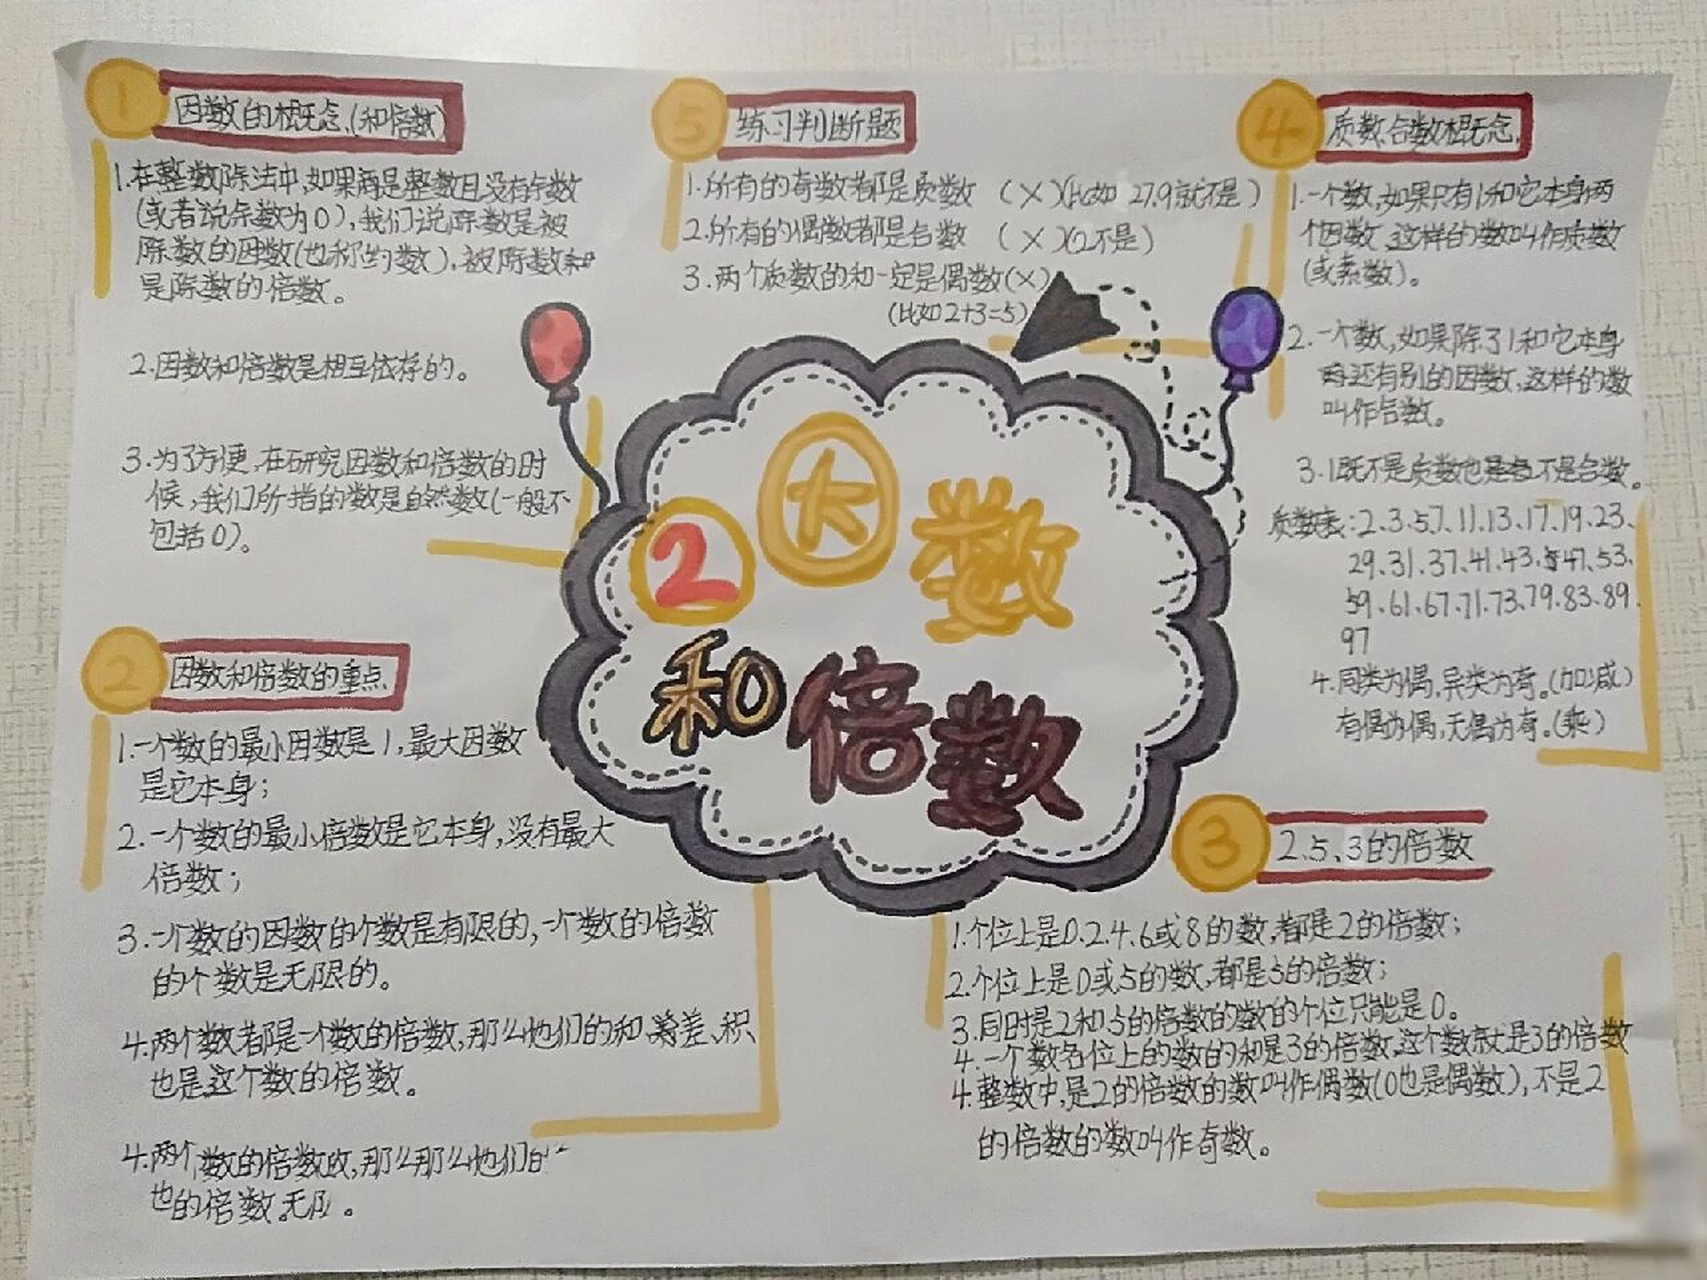 2 因数
和倍数
1 因数的概念(和倍数)
1.在整数除法中,如果商是整数且没有余数
(或者说余数为0),我们说除数是被
除数的因数(也称约数),被除数
是除数的倍数。
2.因数和倍数是相互依存的。
3.为了方便,在研究因数和倍数的时
候,我们所指的数是自然数(一般不
包括0)。
2 因数和倍数的重点
1.一个数的最小因数是1,最大因数
是它本身;
2.一个数的最小倍数是它本身,没有最大
倍数;
3.一个数的因数的个数是有限的,一个数的倍数
的个数是无限的。
4.两个数都是一个数的倍数,那么他们的和、差、积
也是这个数的倍数。
4.两个数的倍数,那么那么他们的
也的倍数。无。
5 练习判断题
1.所有的奇数都是质数 (×)(比如 27.9就不是)
2.所有的偶数都是合数 (×)(2不是)
3.两个质数的和一定是偶数(×)
(比如2+3=5)
4 质数、合数概念
1.一个数,如果只有1和它本身两
个因数,这样的数叫作质数
(或素数)。
2.一个数,如果除了1和它本身
还有别的因数,这样的数
叫作合数。
3.1既不是质数也不是合数。
质数表:2、3、5、7、11、13、17、19、23、
29、31、37、41、43、47、53、
59、61、67、71、73、79、83、89、
97
4.同类为偶,异类为奇。(加减)
有偶为偶,无偶为奇。(乘)
3 2、5、3的倍数
1.个位上是0、2、4、6或8的数,都是2的倍数;
2.个位上是0或5的数,都是5的倍数;
3.同时是2和5的倍数的数的个位只能是0。
4.一个数各位上的数的和是3的倍数,这个数就是3的倍数
4.整数中,是2的倍数的数叫作偶数(0也是偶数),不是2
的倍数的数叫作奇数。